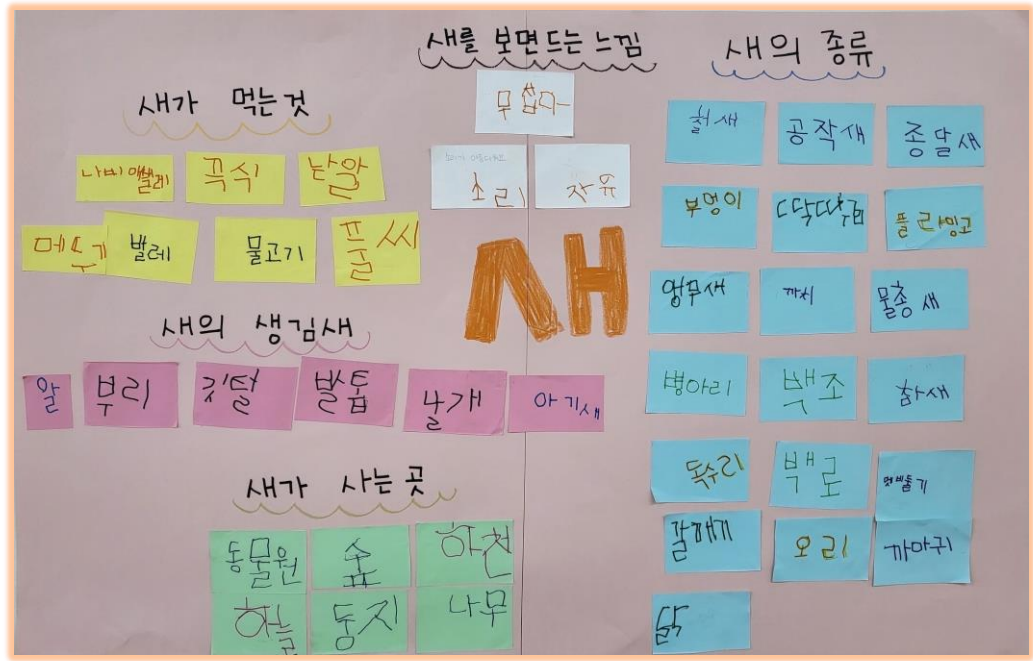 새가 먹는것
나비애벌레 곡식 낱알
메뚜기 벌레 물고기 풀씨
새의 생김새
알 부리 깃털 발톱 날개 아기새
새가 사는 곳
동물원 숲 하천
하늘 둥지 나무
새를 보면드는 느낌
무섭다
소리 자유
새
새의 종류
철새 공작새 종달새
부엉이 딱따구리 플라밍고
앵무새 까치 물총새
병아리 백조 참새
독수리 백로 멧비둘기
갈매기 오리 까마귀
닭